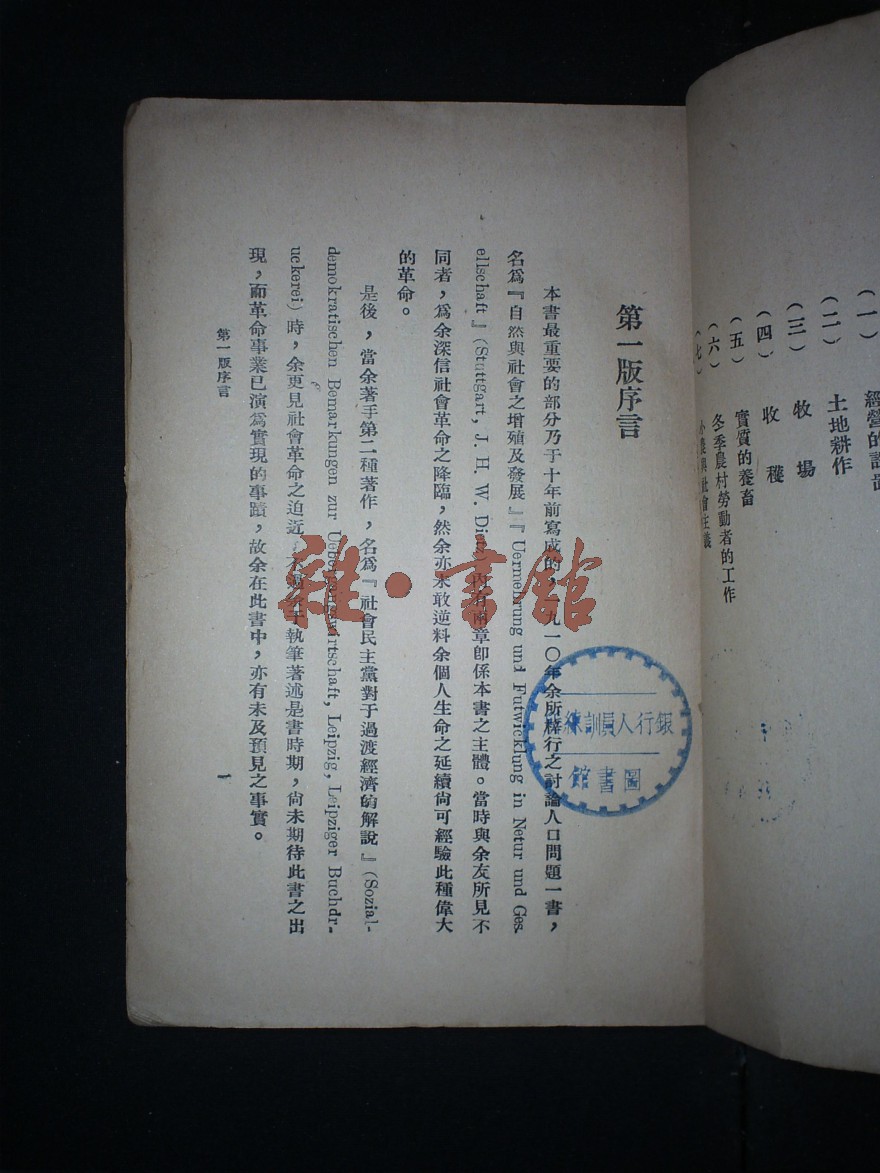 （一）　經營的
（二）　土地耕作
（三）　牧場
（四）　收穫
（五）　實質的養畜
（六）　冬季農村勞動者的工作
（七）　小農與社會主義
第一版序言
本書最重要的部分乃于十年前寫成的，一九一〇年余所梓行之討論人口問題一書，
名爲『自然與社會之增殖及發展』『Uermehrung und Futwicklung in Netur und Ges-
ellschaft』(Stuttgart, J. H. W. 內有兩章卽係本書之主體。當時與余友所見不
同者，爲余深信社會革命之降臨，然余亦未敢逆料余個人生命之延續尙可經驗此種偉大
的革命。
是後，當余著手第二種著作，名爲『社會民主黨對于過渡經濟的解說』(Sozial-
demokratischen Bemarkungen zur Leipzig, Leipziger Buchdr-
uckerei) 時，余更見社會革命之迫近，于執筆著述是書時期，尙未期待此書之出
現，而革命事業已演爲實現的事蹟，故余在此書中，亦有未及預見之事實。
第一版序言
一
銀行人員訓練
圖書館
雜·書館